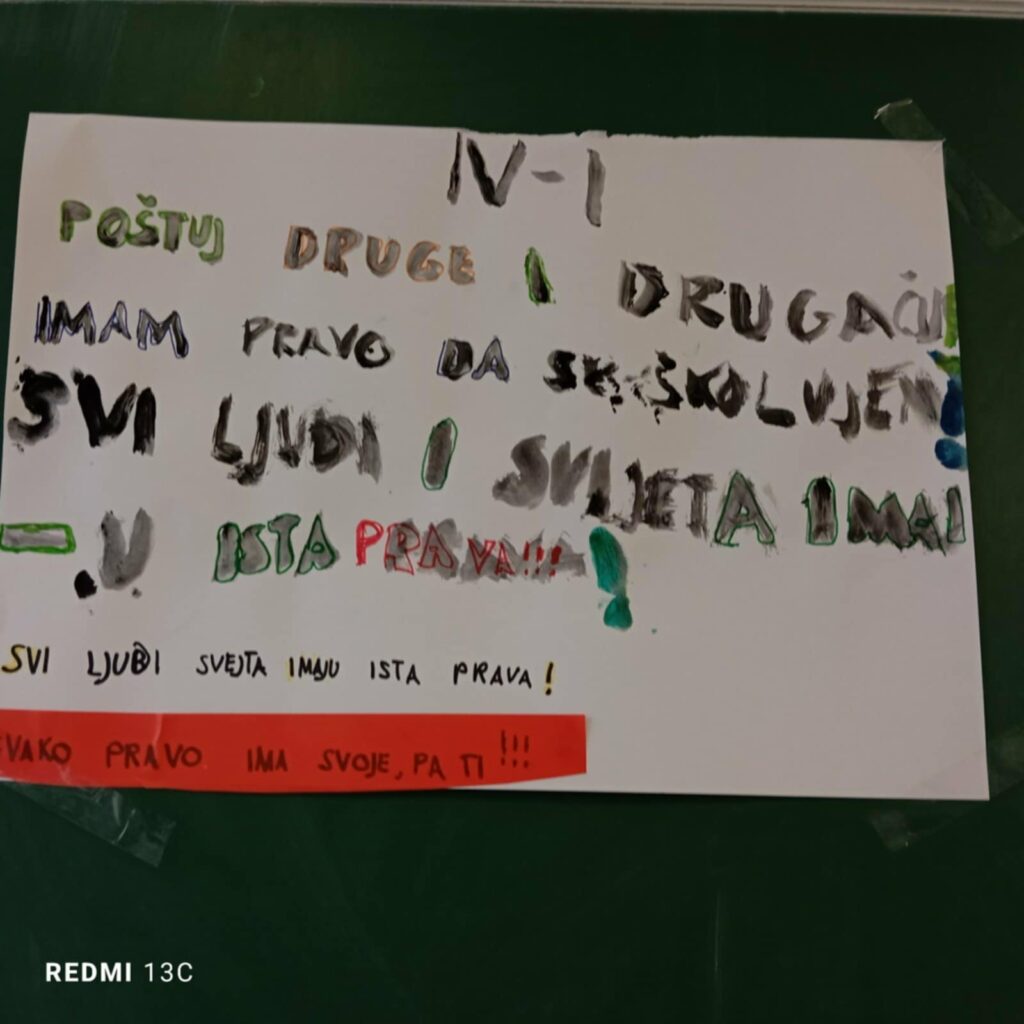 IV-1
POŠTUJ DRUGE I DRUGAČI
IMAM PRAVO DA SE ŠKOLUJEM!
SVI LJUDI I SVIJETA IMAJ
-U ISTA PRAVA!!!!
SVI LJUDI SVEJTA IMAJU ISTA PRAVA!
SVAKO PRAVO IMA SVOJE, PA TI !!!
REDMI 13C